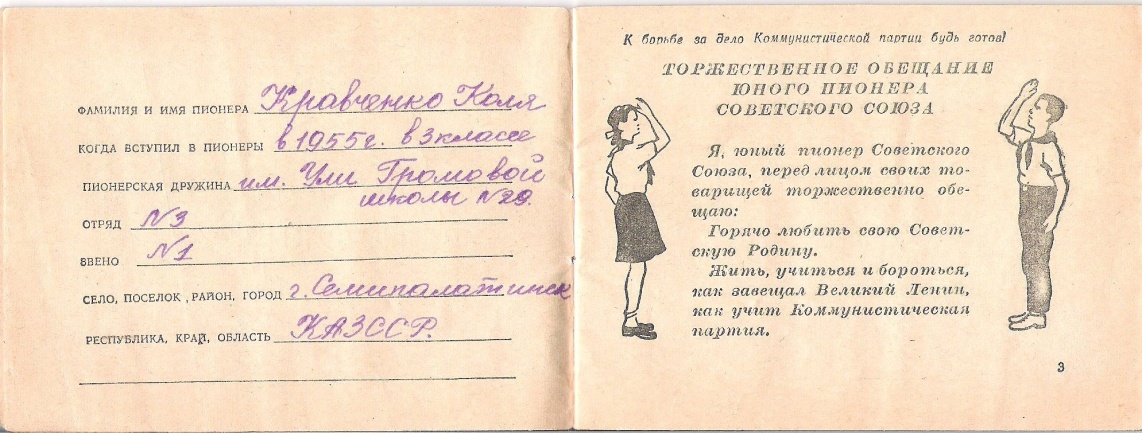 ФАМИЛИЯ И ИМЯ ПИОНЕРА Кравченко Коля
КОГДА ВСТУПИЛ В ПИОНЕРЫ в 1955 г. в 3 классе
ПИОНЕРСКАЯ ДРУЖИНА им. Ули Громовой
школы №29.
ОТРЯД №3
ЗВЕНО №1
СЕЛО, ПОСЕЛОК, РАЙОН, ГОРОД г. Семипалатинск
РЕСПУБЛИКА, КРАЙ, ОБЛАСТЬ КАЗССР.
К борьбе за дело Коммунистической партии будь готов!
ТОРЖЕСТВЕННОЕ ОБЕЩАНИЕ
ЮНОГО ПИОНЕРА
СОВЕТСКОГО СОЮЗА
Я, юный пионер Советского
Союза, перед лицом своих то-
варищей торжественно обе-
щаю:
Горячо любить свою Совет-
скую Родину.
Жить, учиться и бороться,
как завещал Великий Ленин,
как учит Коммунистическая
партия.
3